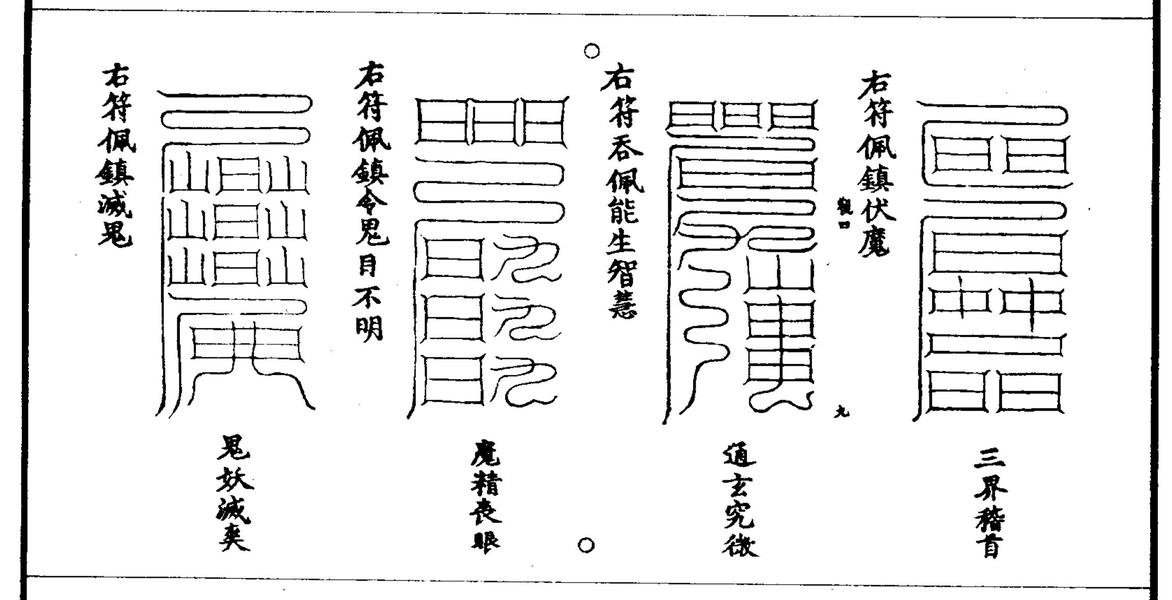 三界稽首
右符佩鎮伏魔
九
通玄究微
右符吞佩能生智慧
魔精喪眼
右符佩鎮令鬼目不明
鬼妖滅爽
右符佩鎮滅鬼